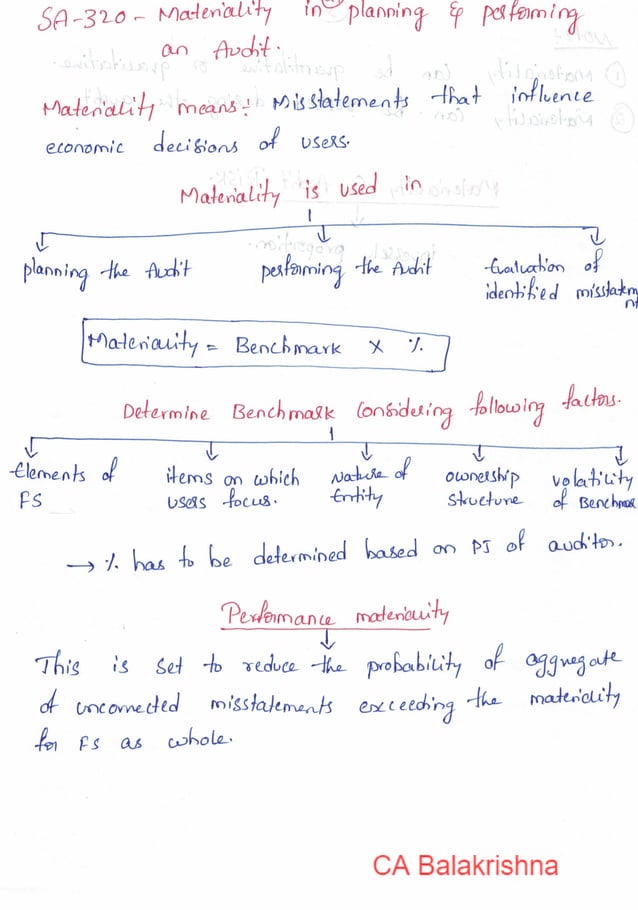 SA-320 - Materiality in planning & performing
an Audit.
Materiality means: Misstatements that influence
economic decisions of users.
Materiality is used in
planning the Audit performing the Audit Evaluation of
identified misstatem
nt
Materiality = Benchmark x %
Determine Benchmark Considering following factors.
Elements of items on which Nature of ownership volatility
FS users focus. Entity structure of Benchmark
→ % has to be determined based on PJ of auditor.
Performance materiality
This is set to reduce the probability of aggregate
of uncorrected misstatements exceeding the materiality
for FS as whole.
CA Balakrishna